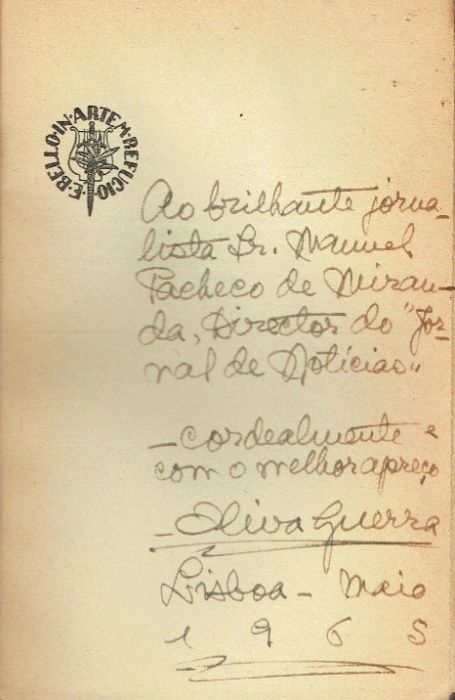 E·BELLO·IN·ARTEM·REFUGIO·
Ao brilhante jorna-
lista Dr. Manuel
Pacheco de Miran-
da, Director do "Jor-
nal de Notícias"
- cordealmente e
com o melhor apreço
- Oliva Guerra
Lisboa - Maio
1965